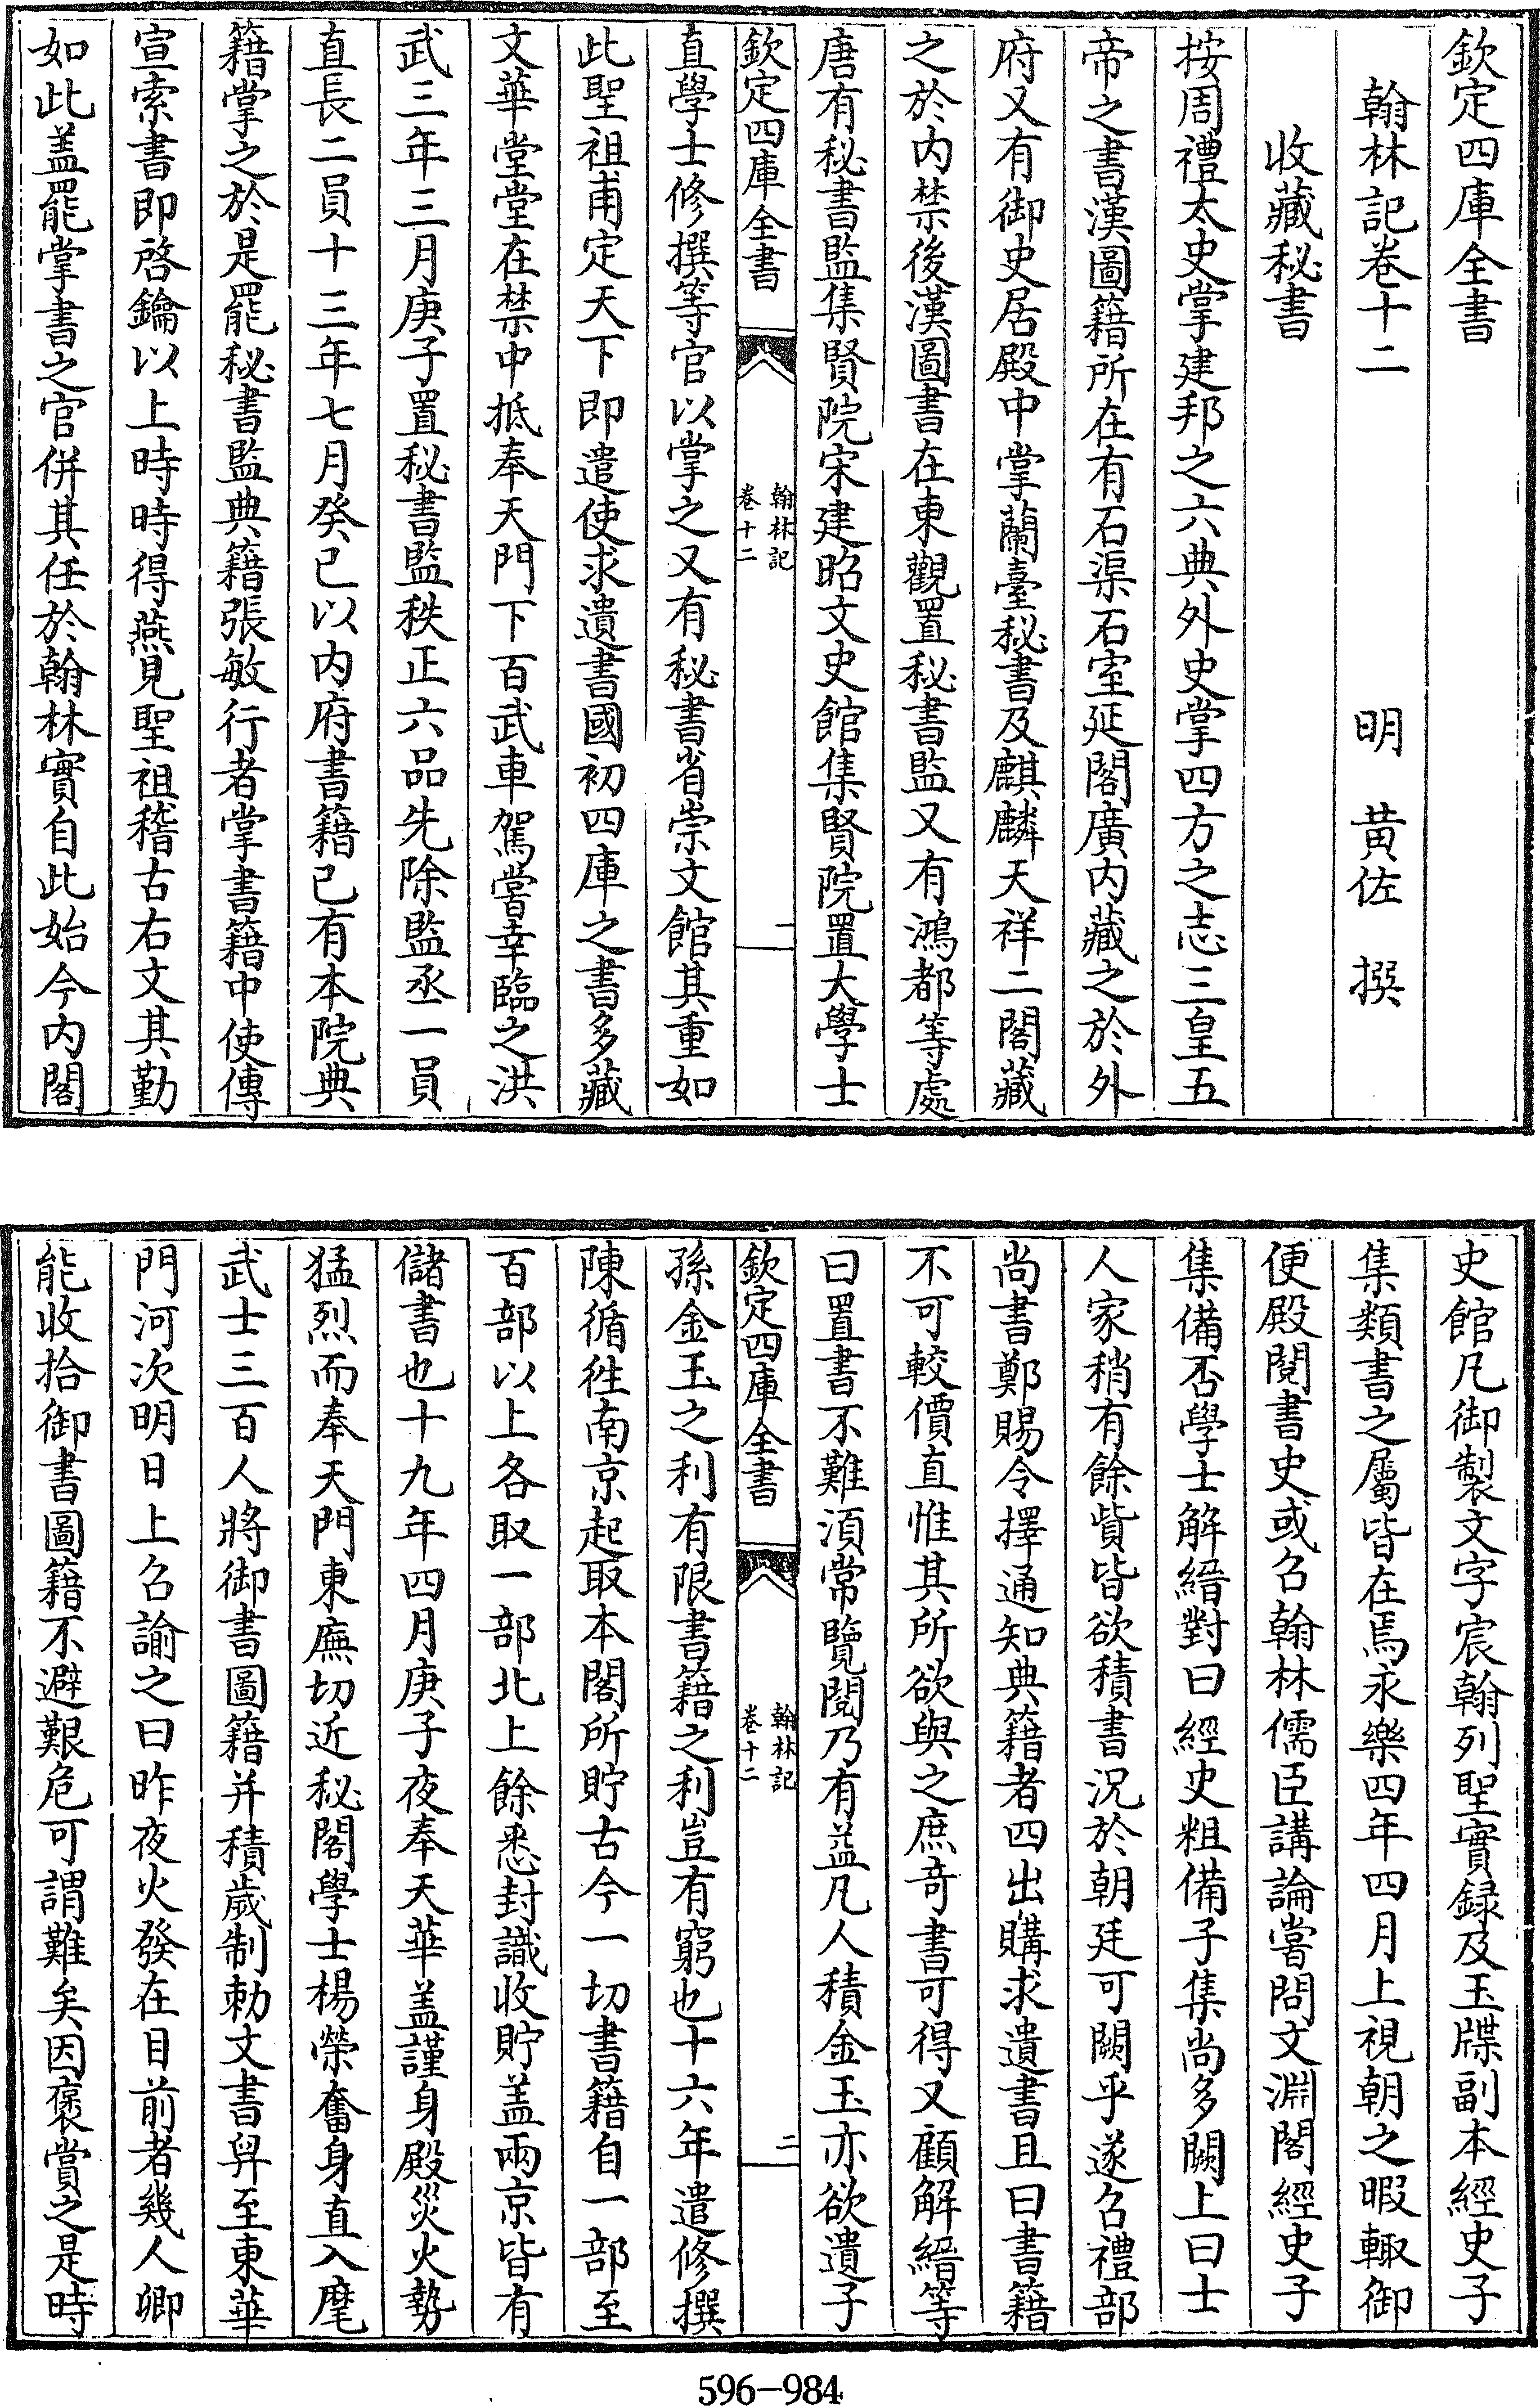 欽定四庫全書
翰林記卷十二
明　黄佐　撰
收藏秘書
按周禮太史掌建邦之六典外史掌四方之志三皇五
帝之書漢圖籍所在有石渠石室延閣廣内藏之於外
府又有御史居殿中掌蘭臺秘書及麒麟天祥二閣藏
之於内禁後漢圖書在東觀置秘書監又有鴻都等處
唐有秘書監集賢院宋建昭文史館集賢院置大學士
欽定四庫全書
翰林記
卷十二
一
直學士修撰等官以掌之又有秘書省崇文館其重如
此聖祖甫定天下即遣使求遺書國初四庫之書多藏
文華堂堂在禁中抵奉天門下百武車駕嘗幸臨之洪
武三年三月庚子置秘書監秩正六品先除監丞一員
直長二員十三年七月癸巳以内府書籍已有本院典
籍掌之於是罷秘書監典籍張敏行者掌書籍中使傳
宣索書即啓鑰以上時時得燕見聖祖稽古右文其勤
如此盖罷掌書之官併其任於翰林實自此始今内閣
史館凡御製文字宸翰列聖實録及玉牒副本經史子
集類書之屬皆在焉永樂四年四月上視朝之暇輙御
便殿閱書史或名翰林儒臣講論嘗問文淵閣經史子
集備否學士解縉對曰經史粗備子集尚多闕上曰士
人家稍有餘貲皆欲積書況於朝廷可闕乎遂召禮部
尚書鄭賜令擇通知典籍者四出購求遺書且曰書籍
不可較價直惟其所欲與之庶奇書可得又顧解縉等
曰置書不難湏常覽閱乃有益凡人積金玉亦欲遺子
欽定四庫全書
翰林記
卷十二
二
孫金玉之利有限書籍之利豈有窮也十六年遣修撰
陳循徃南京起取本閣所貯古今一切書籍自一部至
百部以上各取一部北上餘悉封識收貯盖兩京皆有
儲書也十九年四月庚子夜奉天華盖謹身殿災火勢
猛烈而奉天門東廡切近秘閣學士楊榮奮身直入麾
武士三百人將御書圖籍并積歲制勅文書舁至東華
門河次明日上召諭之曰昨夜火發在目前者幾人卿
能收拾御書圖籍不避艱危可謂難矣因褒賞之是時
596-984